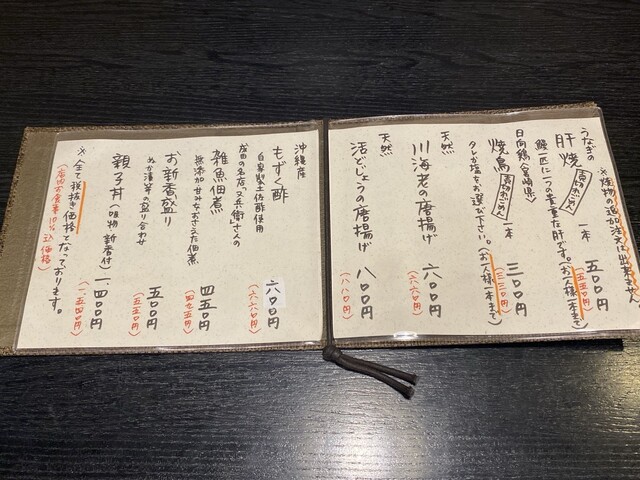 ※焼物の追加注文は出来ません。
うなぎの
肝焼 売切れごめん 一本 五〇〇円
(五五〇円)
鰻一匹に一つの貴重な肝です。(お一人様一本まで)
日向鶏(宮崎県)
焼鳥 売切れごめん 一本 三〇〇円
(三三〇円)
タレか塩をお選び下さい。(お一人様一本まで)
天然
川海老の唐揚げ 六〇〇円
(六六〇円)
天然
活どじょうの唐揚げ 八〇〇円
(八八〇円)
沖縄産
もずく酢 六〇〇円
自家製土佐酢使用
(六六〇円)
成田の名店「又兵衛」さんの
雑魚佃煮 四五〇円
無添加 甘みをおさえた佃煮
(四九五円)
お新香盛り 五〇〇円
ぬか漬等の盛り合わせ
(五五〇円)
親子丼(吸物 新香付) 一、四〇〇円
(一、五四〇円)
※全て税抜き価格となっております。
(店内お食事10%込価格)